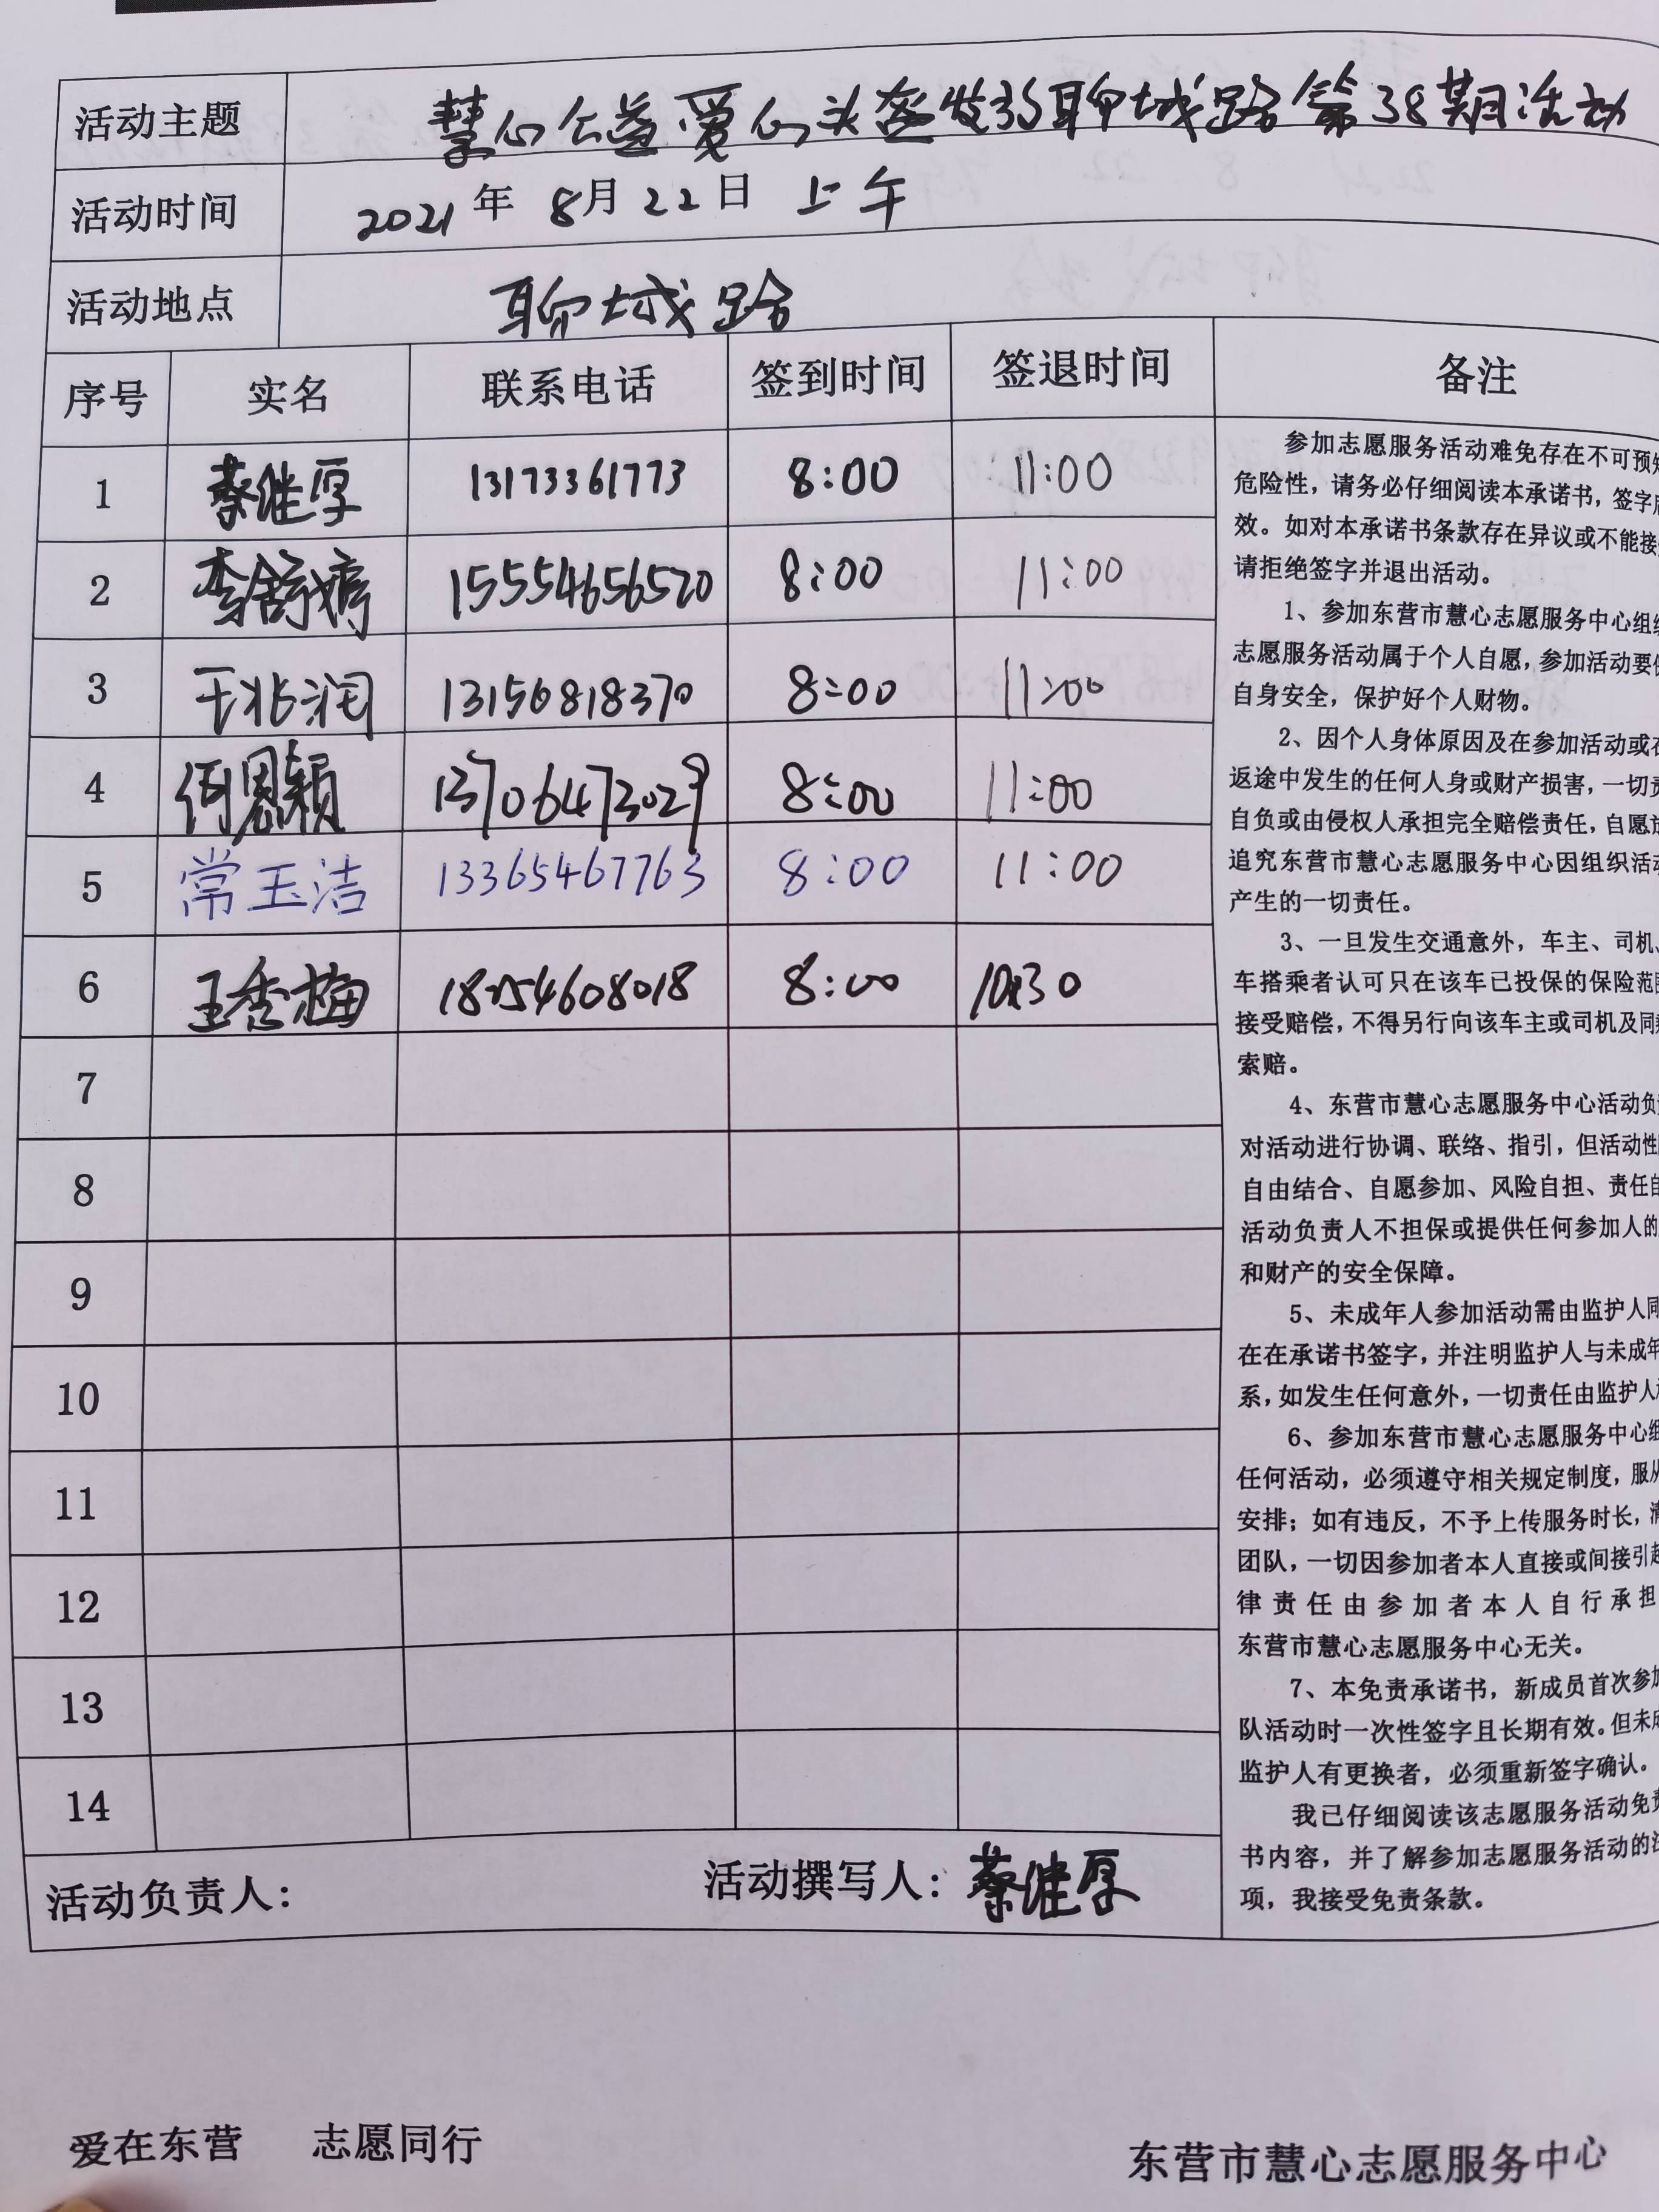 活动主题 慧心公益爱心头盔发放聊城路第38期活动
活动时间 2021年 8月22日 上午
活动地点 聊城路
序号 实名 联系电话 签到时间 签退时间 备注
1 蔡继厚 13173361773 8:00 11:00
2 李舒婷 15554656520 8:00 11:00
3 13156818370 8:00 11:00
4 何恩颖 13706473029 8:00 11:00
5 常玉洁 13365467763 8:00 11:00
6 王秀梅 18254608018 8:00 10:30
7
8
9
10
11
12
13
14
参加志愿服务活动难免存在不可预知
危险性，请务必仔细阅读本承诺书，签字
效。如对本承诺书条款存在异议或不能接
请拒绝签字并退出活动。
1、参加东营市慧心志愿服务中心组
志愿服务活动属于个人自愿，参加活动要
自身安全，保护好个人财物。
2、因个人身体原因及在参加活动或在
返途中发生的任何人身或财产损害，一切责
自负或由侵权人承担完全赔偿责任，自愿
追究东营市慧心志愿服务中心因组织活动
产生的一切责任。
3、一旦发生交通意外，车主、司机、
车搭乘者认可只在该车已投保的保险范
接受赔偿，不得另行向该车主或司机及同
索赔。
4、东营市慧心志愿服务中心活动负
对活动进行协调、联络、指引，但活动性
自由结合、自愿参加、风险自担、责任自
活动负责人不担保或提供任何参加人的
和财产的安全保障。
5、未成年人参加活动需由监护人同
在在承诺书签字，并注明监护人与未成年
系，如发生任何意外，一切责任由监护人
6、参加东营市慧心志愿服务中心组
任何活动，必须遵守相关规定制度，服从
安排；如有违反，不予上传服务时长，清
团队，一切因参加者本人直接或间接引起
律责任由参加者本人自行承担
东营市慧心志愿服务中心无关。
7、本免责承诺书，新成员首次参加
队活动时一次性签字且长期有效。但未成
监护人有更换者，必须重新签字确认。
我已仔细阅读该志愿服务活动免责
书内容，并了解参加志愿服务活动的注
项，我接受免责条款。
活动负责人： 活动撰写人：蔡继厚
爱在东营 志愿同行
东营市慧心志愿服务中心